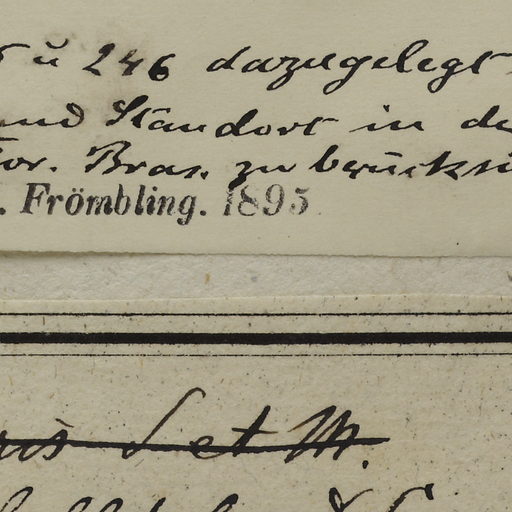 u 246 dazugelegt
und Standort in de
or. Bras. zu berücksi
. Frömbling. 1895
is L et M.